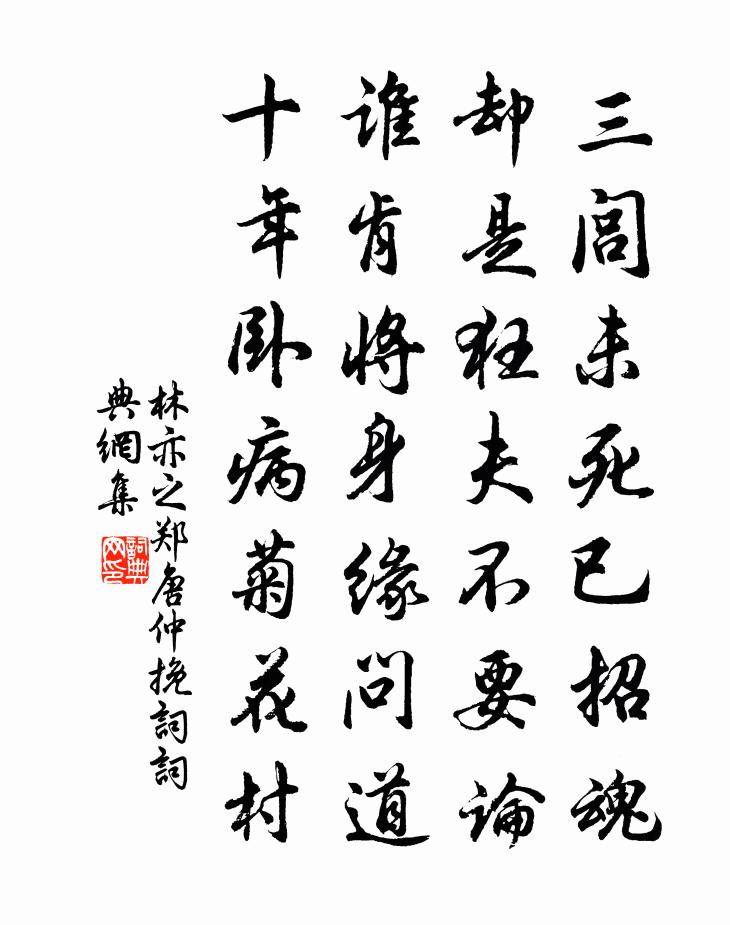 三闾未死已招魂
却是狂夫不要论
谁肯将身缘问道
十年卧病菊花村
林亦之郑唐仲挽詞詞
典網集
詞典
网印